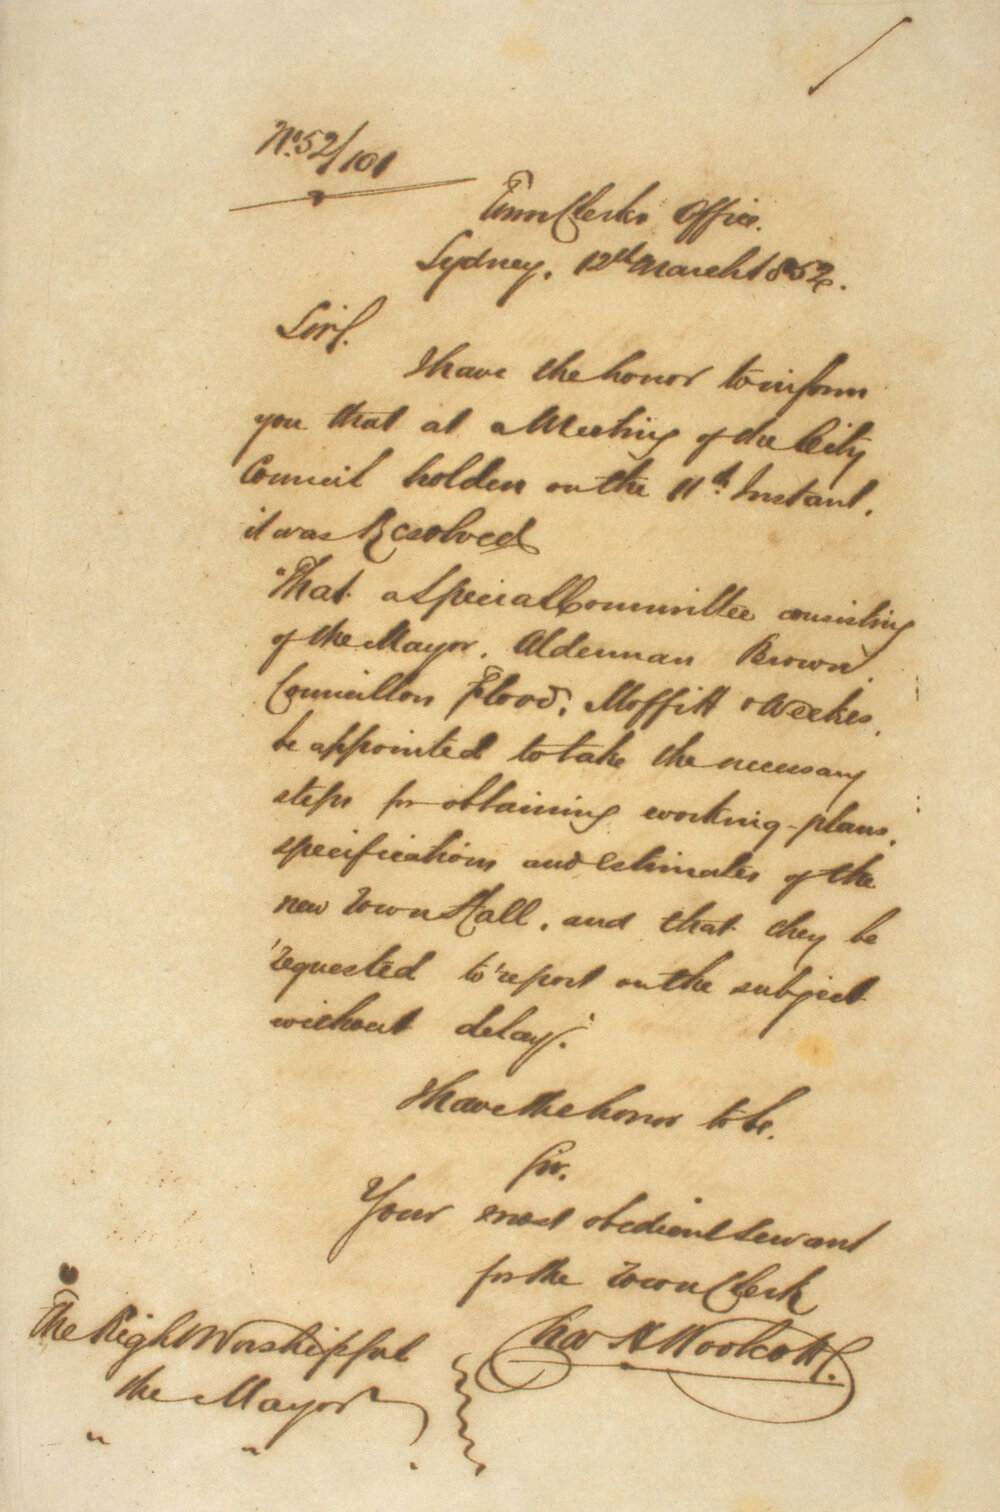 No. 52/101
Town Clerks Office.
Sydney, 12th March 1852.
Sir,
I have the honor to inform
you that at a Meeting of the City
Council holden on the 11th Instant,
it was Resolved
"That a Special Committee consisting
of the Mayor, Alderman Brown,
Councillors Flood, Moffitt & Weekes,
be appointed to take the necessary
steps for obtaining working-plans,
specifications and estimates of the
new Town Hall, and that they be
requested to report on the subject
without delay."
I have the honor to be,
Sir,
Your most obedient Servant
for the Town Clerk
Chas H Woolcott.
The Right Worshipful
the Mayor
" "